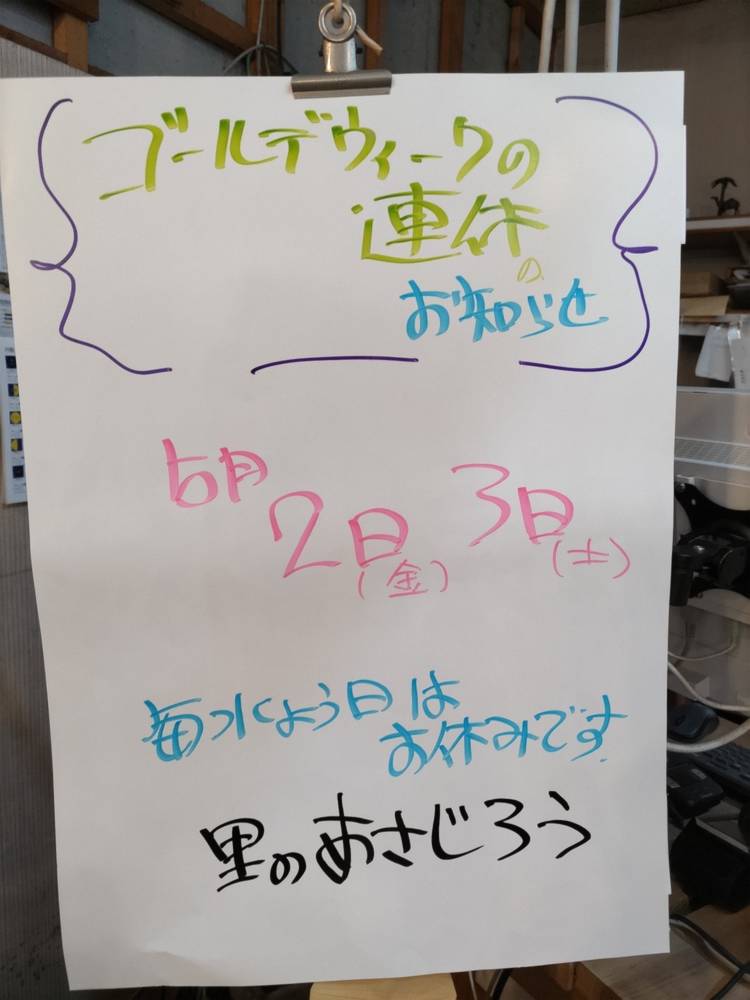 ゴールデウィークの
連休の
お知らせ
5月
2日 3日
(金) (土)
毎水よう日は
お休みです
里のあさじろう